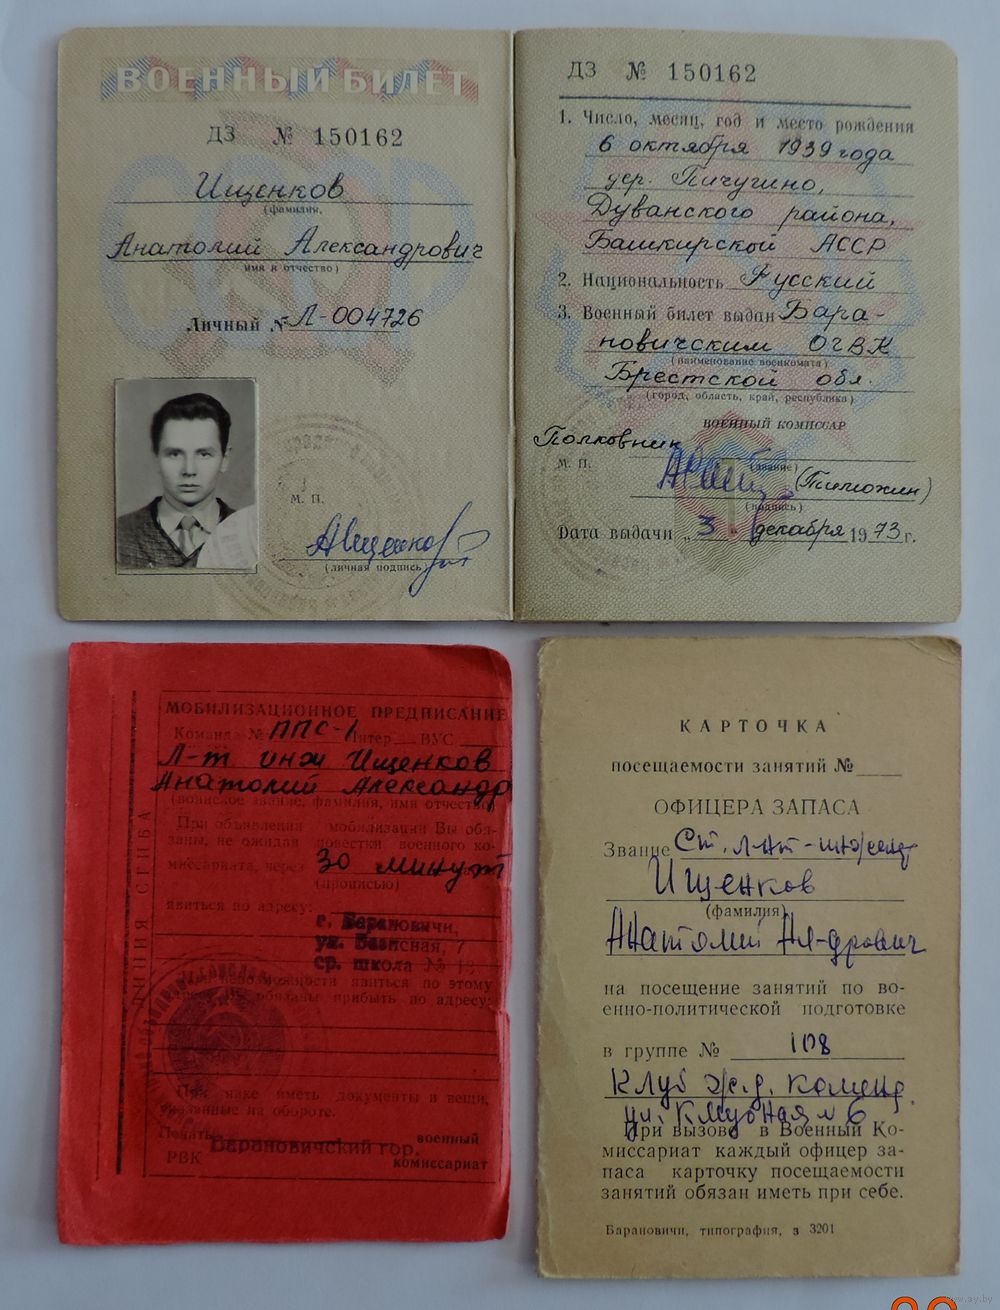 ВОЕННЫЙ БИЛЕТ
ДЗ № 150162
Ищенков
(фамилия,
Анатолий Александрович
имя и отчество)
Личный № Л-004726
М. П.
(личная подпись)
ДЗ № 150162
1. Число, месяц, год и место рождения
6 октября 1939 года
дер. Пичугино,
Дуванского района,
Башкирской АССР
2. Национальность Русский
3. Военный билет выдан Бара-
новичским ОГВК
(наименование военкомата)
Брестской обл.
(город, область, край, республика)
ВОЕННЫЙ КОМИССАР
Полковник
М. П. (звание)
(Тимохин)
(подпись)
Дата выдачи „3" декабря 1973 г.
МОБИЛИЗАЦИОННОЕ ПРЕДПИСАНИЕ
Команда № ППС-1 Литер ВУС
Л-т инж Ищенков
Анатолий Александр
(воинское звание, фамилия, имя отчество)
При объявлении мобилизации Вы обя-
заны, не ожидая повестки военного ко-
миссариата, через 30 минут
(прописью)
явиться по адресу:
г. Барановичи,
ср. школа №
При невозможности явиться по этому
адресу обязаны прибыть по адресу:
При явке иметь документы и вещи,
указанные на обороте.
Печать
РВК
Барановичский гор. военный
комиссариат
ЛИНИЯ СГИБА
КАРТОЧКА
посещаемости занятий №
ОФИЦЕРА ЗАПАСА
Звание Ст. л-нт-инженер
Ищенков
(фамилия)
Анатолий Ал-дрович
на посещение занятий по во-
енно-политической подготовке
в группе № 108
Клуб ж.д.
ул. Клубная 6
При вызове в Военный Ко-
миссариат каждый офицер за-
паса карточку посещаемости
занятий обязан иметь при себе.
Барановичи, типография, з 3201
www.ay.by